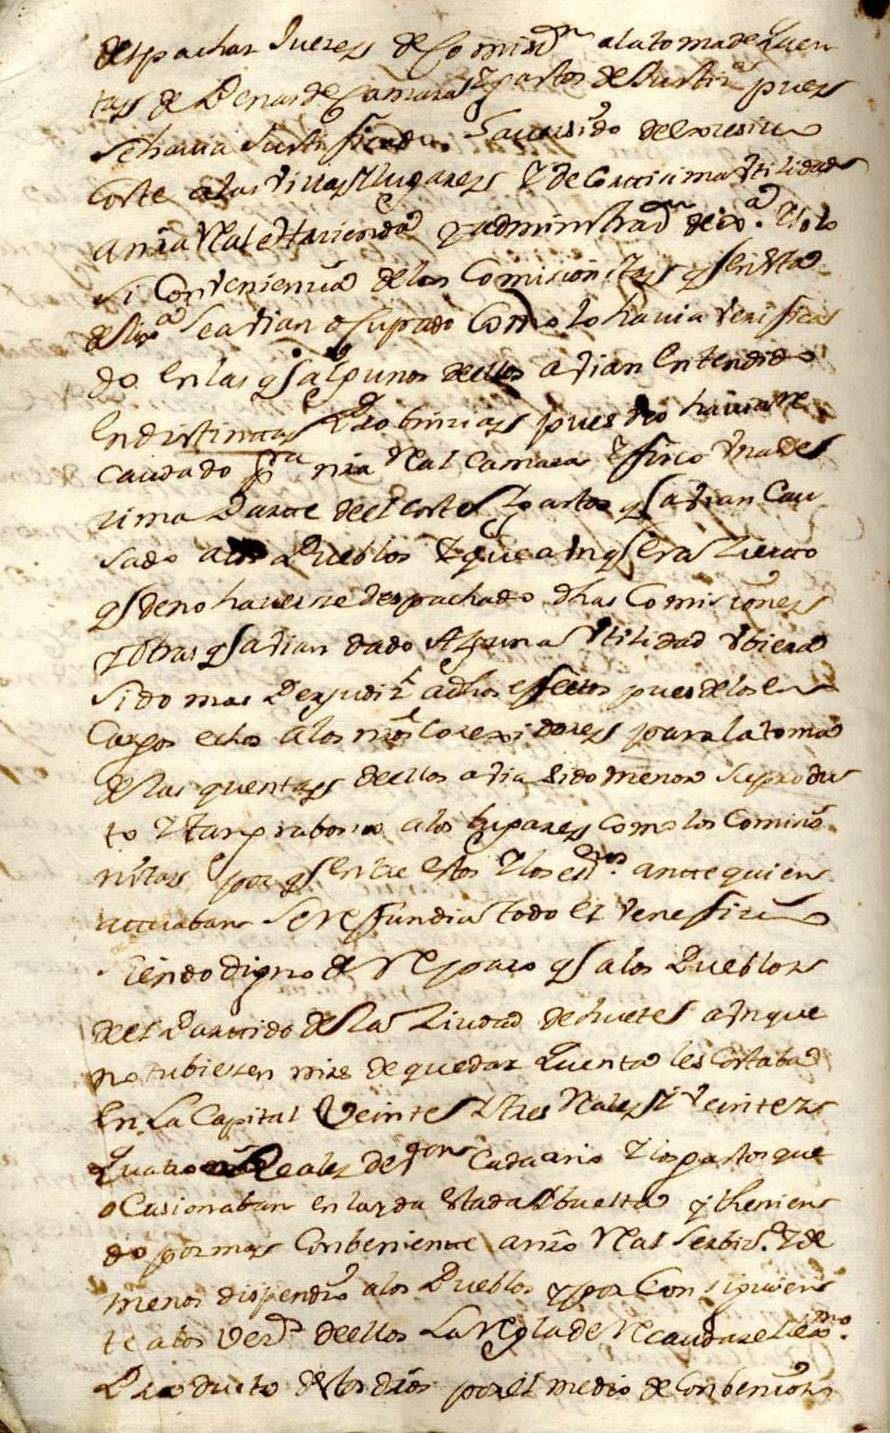 despachar Juezes de Comisn a la toma de quen
tas de Penas de Camara y gastos de Justiª pues
se havia Justificado haver sido de excesivo
coste a las villas y lugares y de cortisima Utilidad
a nrâ Real Hazienda y administrazn de ella. Y solo
si convenienzia de los Comisionistas q en esta
dilixª se avian ocupado como lo havia verifica
do en las q algunos dellos avian entendido
en distintas Probinzias pues no havian re
caudado pra nrâ Real Camara y fisco una dez
zima Parte del coste y gastos q avian cau
sado a los Pueblos y que aunq era zierto
q de no haverse despachado dhas Comisiones
y otras q avian dado Alguna Utilidad ubiera
sido mas Perjudizl a dhos efectos pues de los en
cargos echos a los nrôs Corexidores para la toma
de las quentas dellos avia sido menor su produc
to y tan grabosso a los lugares como los Comisio
nistas por q entre estos y los essnos ante quien
actuaban se refundia todo el veneficio
siendo digno de Reparo q a los Pueblos
del Partido de la Ziudad de huete aunque
no tubiesen mrs de que dar quenta les costaba
en la Capital Veinte y tres Reales y veinte y
quatro Reales de von cada año y los gastos que
ocasionaban en la yda estada y buelta y thenien
do por mas conbeniente a nrô Real serbizº y de
menos dispendio a los Pueblos y por Consiguien
te a los Vezos de ellos la Regla de Recaudarse el
Producto de los dros por el medio de Conbenios